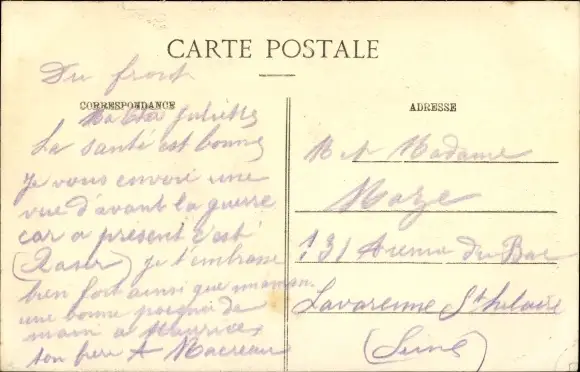 CARTE POSTALE
Du front
CORRESPONDANCE
Ma Juliette
La santé est bonne
Je vous envoie une
vue d'avant la guerre
car a présent c'est
(Raser) je t'embrasse
bien fort ainsi que maman
une bonne poignée de
main a Maurice
ton frère A
ADRESSE
M et Madame
Maze
131 Avenue du Bac
Lavarenne St hilaire
(Seine)